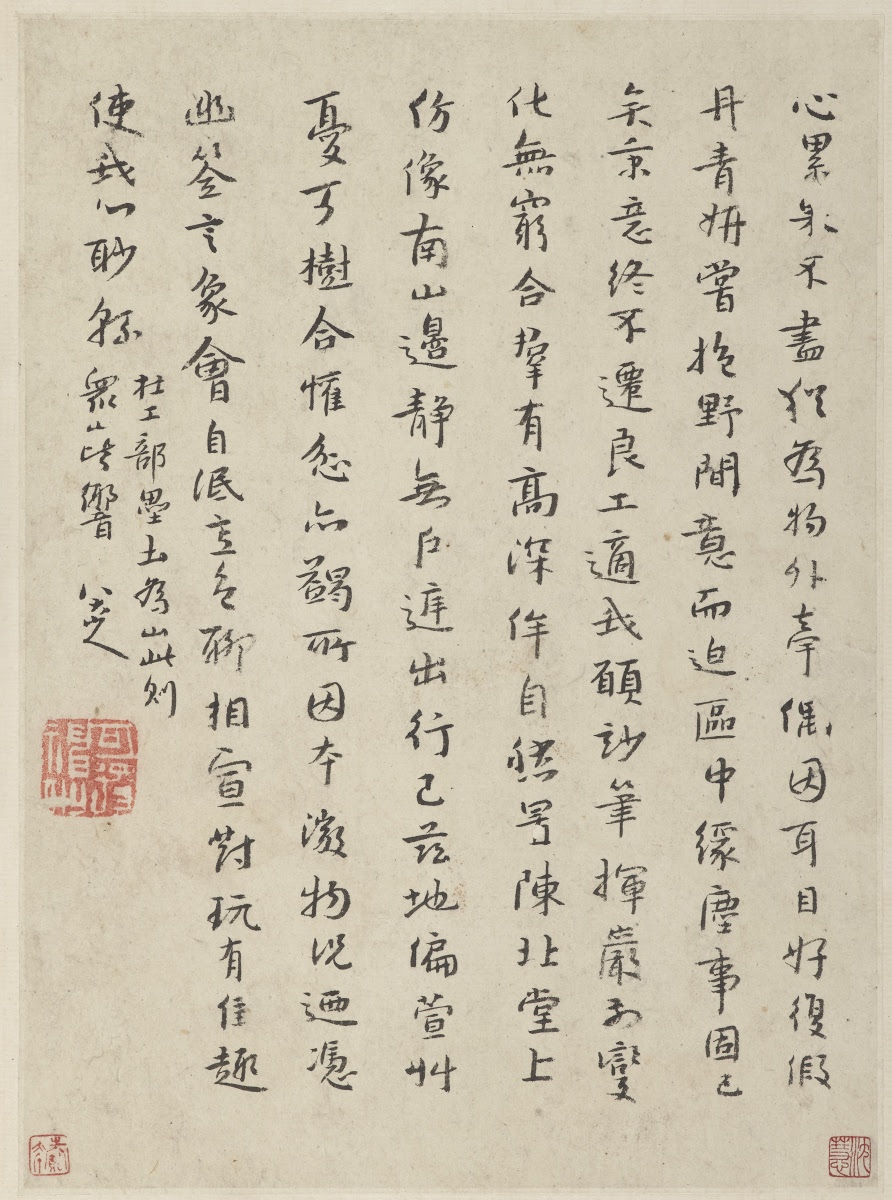 心累不盡猶為物外牽偶因耳目好復假
丹青妍嘗抱野間意而迫區中緣塵事固已
矣秉意終不遷良工適我願妙筆揮巖變
化無窮合羣有高深侔自然陳北堂上
仿像南山邊靜無戶出行已茲地偏萱艸
憂可樹合懽忿亦蠲所因本微物況迺憑
幽筌言象會自泯意色聊相宣對玩有佳趣
使我心眇緜
杜工部壘土為山此則
衆山皆響 八大山人